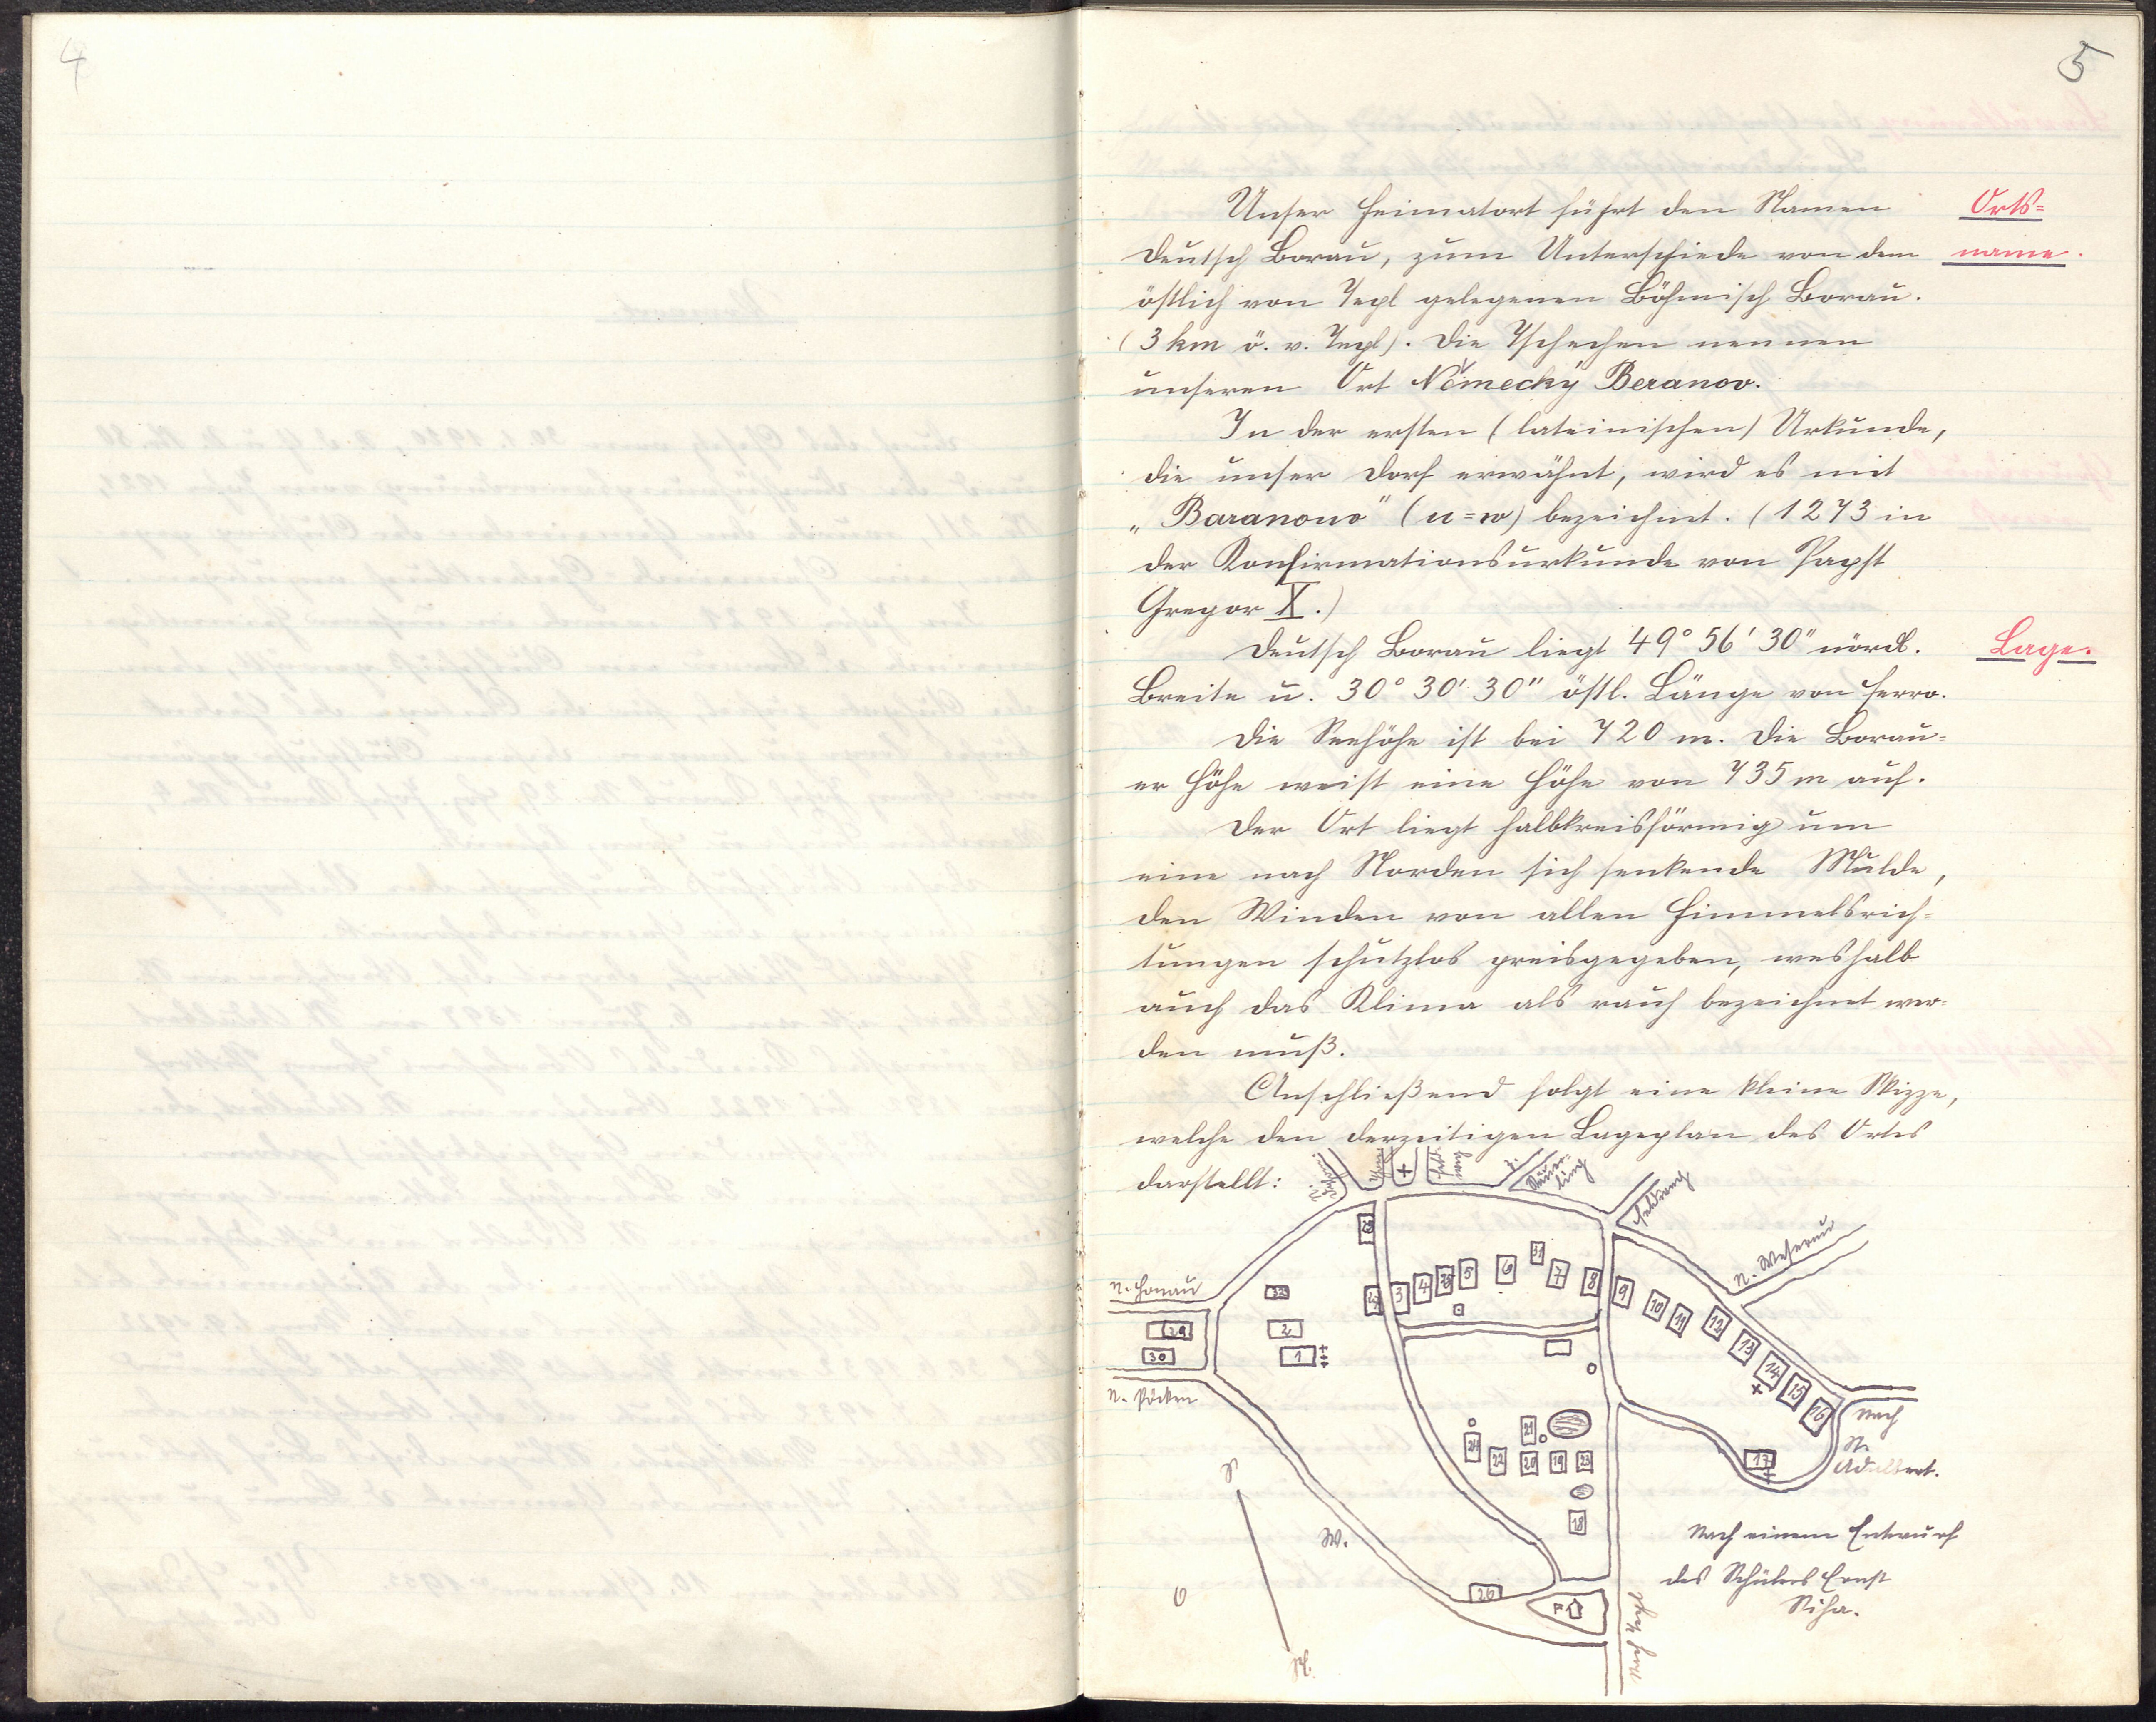 4
5
Orts=
name.
Unser Heimatort führt den Namen
Deutsch Borau, zum Unterschiede von dem
östlich von Tepl gelegenen Böhmisch Borau.
(3 km ö. v. Tepl). Die Tschechen nennen
unseren Ort Německý Beranov.
In der ersten (lateinischen) Urkunde,
die unser Dorf erwähnt, wird es mit
„Baranouo" (u=w) bezeichnet. (1273 in
der Konfirmationsurkunde von Papst
Gregor X.)
Lage.
Deutsch Borau liegt 49° 56' 30" nördl.
Breite u. 30° 30' 30" östl. Länge von Ferro.
Die Seehöhe ist bei 720 m. Die Borau=
er Höhe weist eine Höhe von 735 m auf.
Der Ort liegt halbkreisförmig um
eine nach Norden sich senkende Mulde,
den Winden von allen Himmelsrich=
tungen schutzlos preisgegeben, weshalb
auch das Klima als rauh bezeichnet wer=
den muß.
Anschließend folgt eine kleine Skizze,
welche den derzeitigen Lageplan des Ortes
darstellt:
Feldweg
n. Weserau
n. Honau
n. Pöcken
29
30
32
2
1
3
4
5
6
31
7
8
9
10
11
12
13
14
15
16
17
nach
St.
Adalbert.
21
24
22
20
19
23
18
26
S
W.
O
N.
F
nach Tepl
Nach einem Entwurf
des Schülers Ernst
Riha.